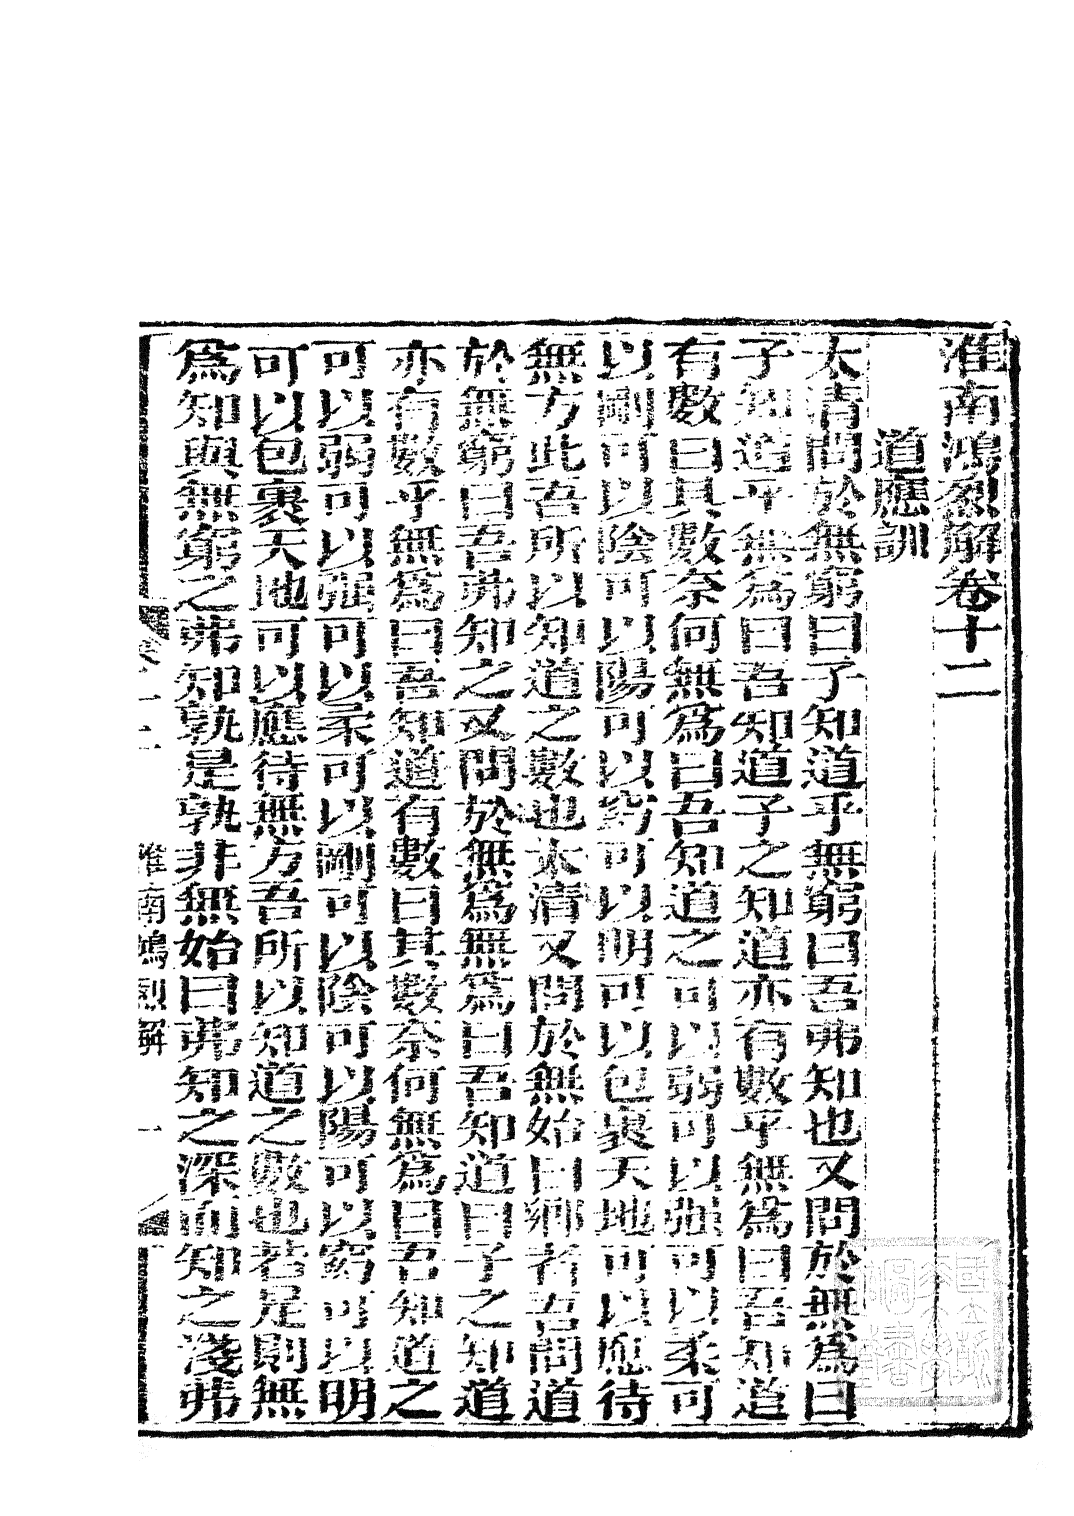 淮南鴻烈解卷十二
道應訓
太清問於無窮曰子知道乎無窮曰吾弗知也又問於無爲曰
子知道乎無爲曰吾知道子之知道亦有數乎無爲曰吾知道
有數曰其數奈何無爲曰吾知道之可以弱可以强可以柔可
以剛可以陰可以陽可以窈可以明可以包裹天地可以應待
無方此吾所以知道之數也太清又問於無始曰鄉者吾問道
於無窮曰吾弗知之又問於無爲無爲曰吾知道曰子之知道
亦有數乎無爲曰吾知道有數曰其數奈何無爲曰吾知道之
可以弱可以强可以柔可以剛可以陰可以陽可以窈可以明
可以包裹天地可以應待無方吾所以知道之數也若是則無
爲知與無窮之弗知孰是孰非無始曰弗知之深而知之淺弗
卷十二 淮南鴻烈解 一